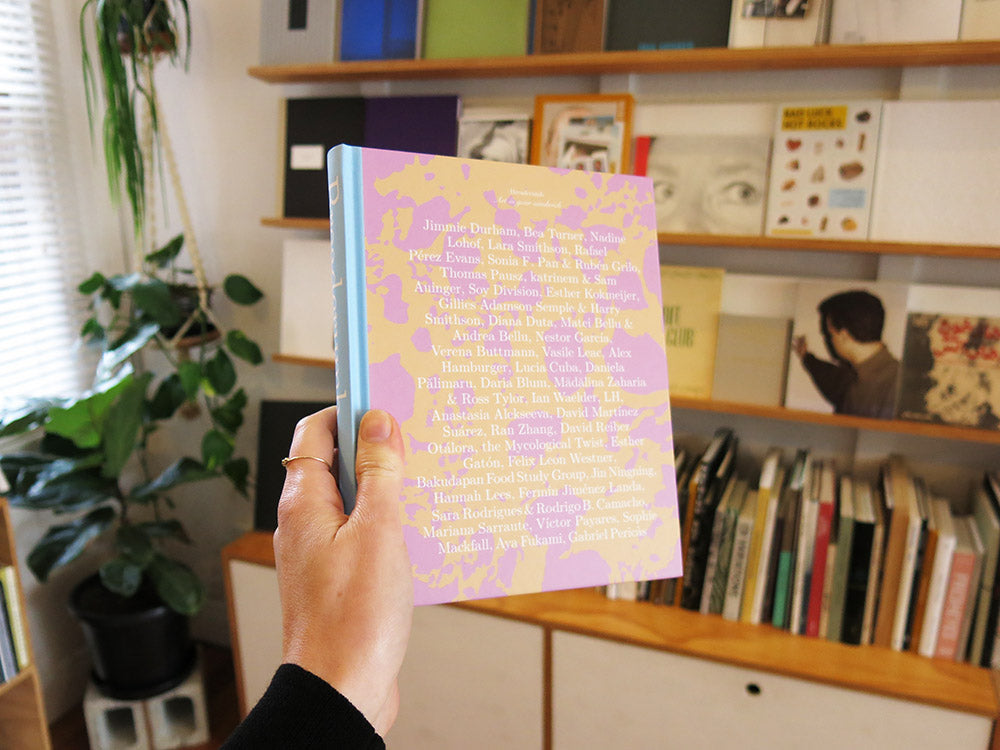 Jimmie Durham, Bea Turner, Nadine
Lohof, Lara Smithson, Rafael
Pérez Evans, Sonia F. Pan & Rubén Grilo,
Thomas Pausz, katrinem & Sam
Auinger, Soy Division, Esther Kokmeijer,
Gillies Adamson Semple & Harry
Smithson, Diana Duta, Matei Bellu &
Andrea Bellu, Nestor García,
Verena Buttmann, Vasile Leac, Alex
Hamburger, Lucia Cuba, Daniela
Pălimaru, Daria Blum, Mădălina Zaharia
& Ross Tylor, Ian Waelder, LH,
Anastasia Alekseeva, David Martínez
Suárez, Ran Zhang, David Reiber
Otálora, the Mycological Twist, Esther
Gatón, Felix Leon Westner,
Bakudapan Food Study Group, Jin Ningning,
Hannah Lees, Fermín Jiménez Landa,
Sara Rodrigues & Rodrigo B. Camacho,
Mariana Sarrante, Víctor Payares, Sophie
Mackfall, Aya Fukami, Gabriel Pericàs
BAD LUCK
HOT ROCKS